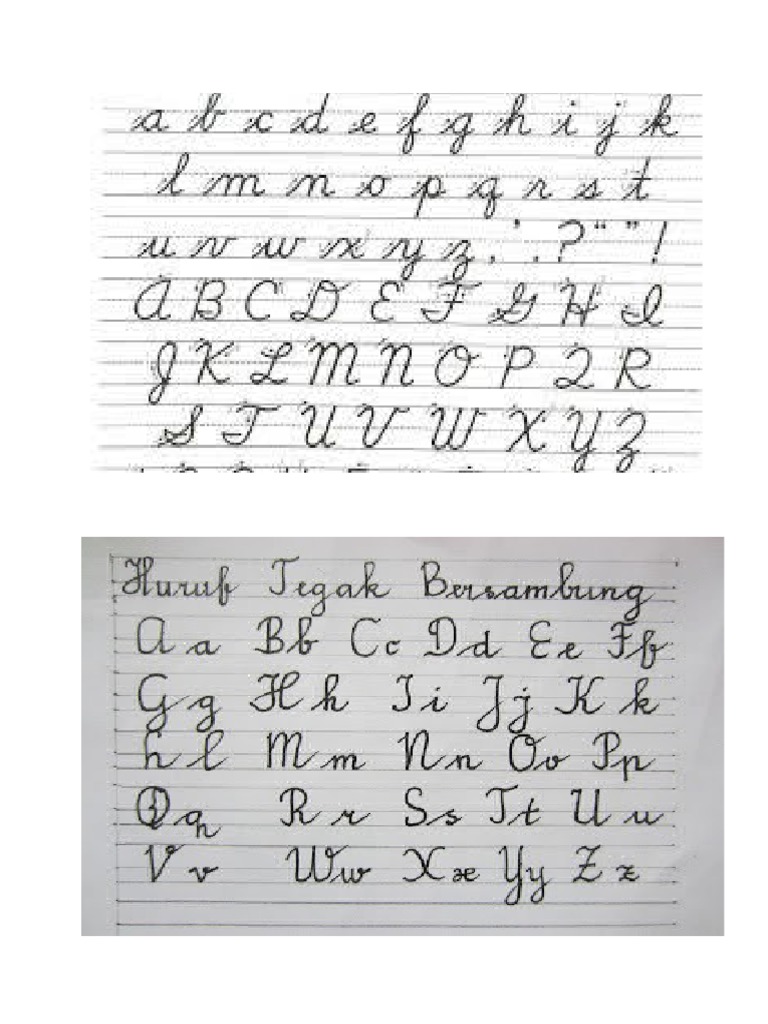 a b c d e f g h i j k
l m n o p q r s t
u v w x y z , ' . ? “ ” !
A B C D E F G H I
J K L M N O P Q R
S T U V W X Y Z
Huruf Tegak Bersambung
A a B b C c D d E e F f
G g H h I i J j K k
L l M m N n O o P p
Q q R r S s T t U u
V v W w X x Y y Z z